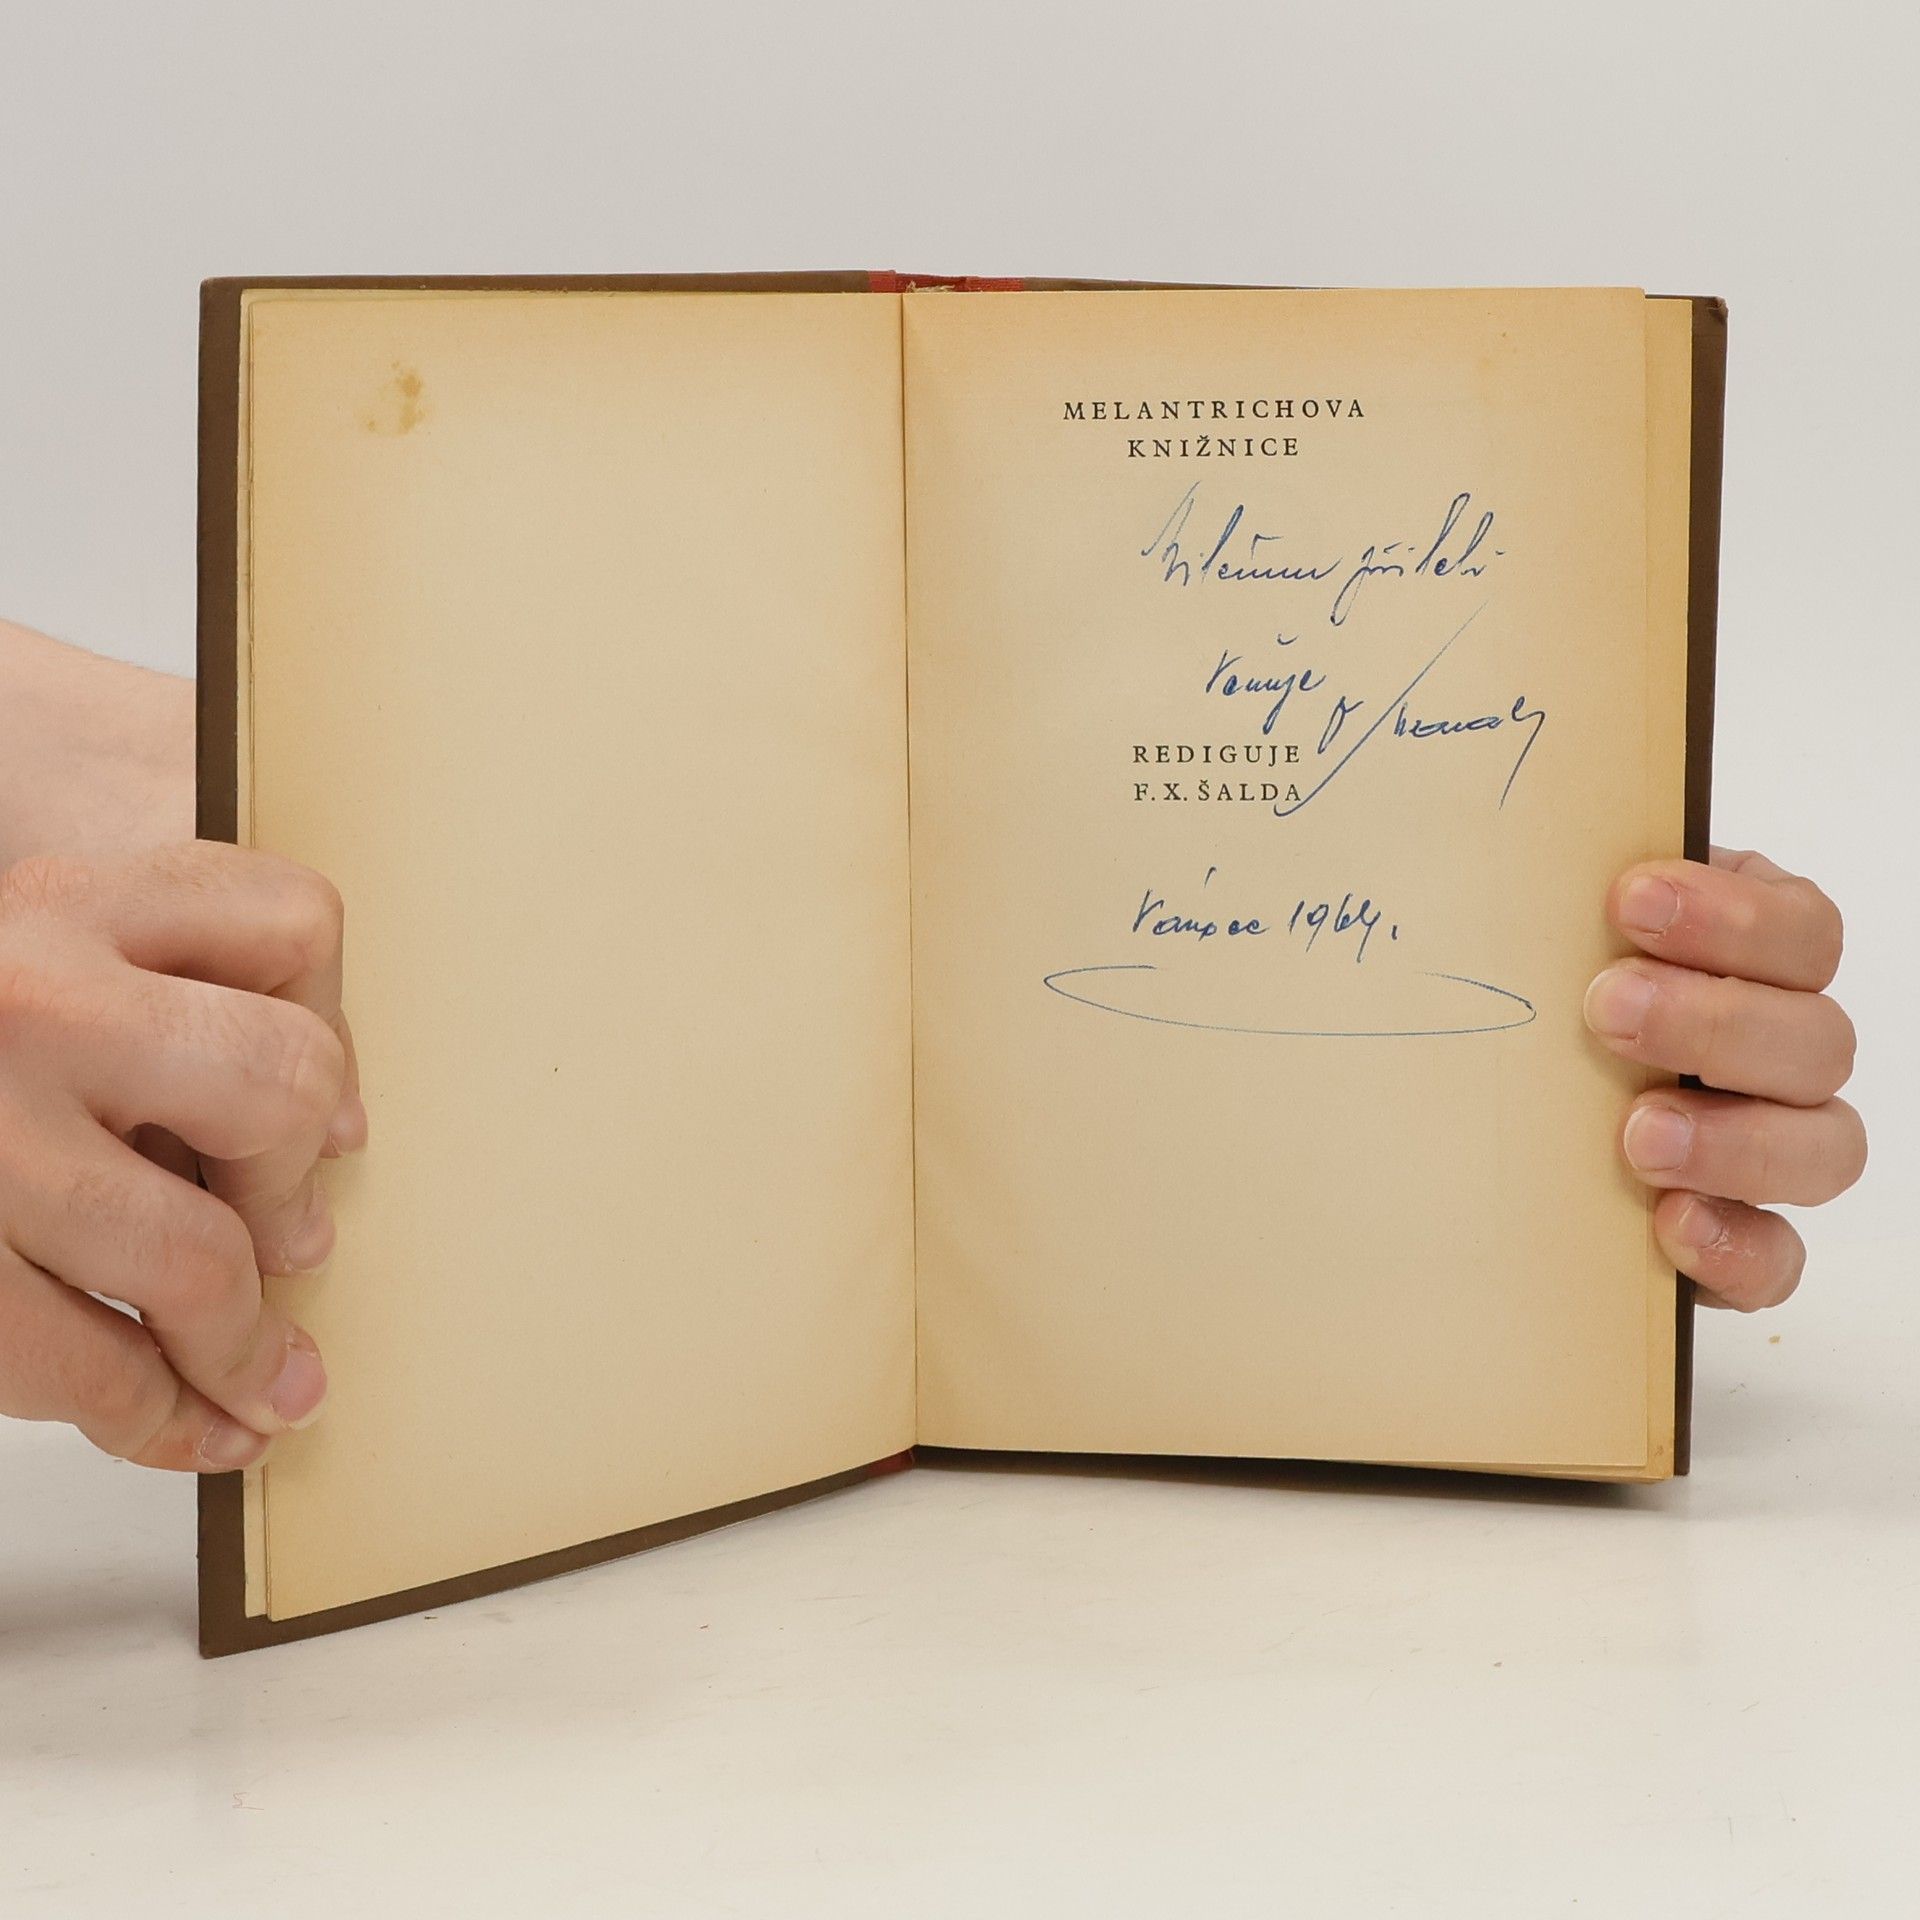 MELANTRICHOVA
KNIŽNICE
Milému příteli
věnuje
REDIGUJE
F. X. ŠALDA
Vánoce 1964.